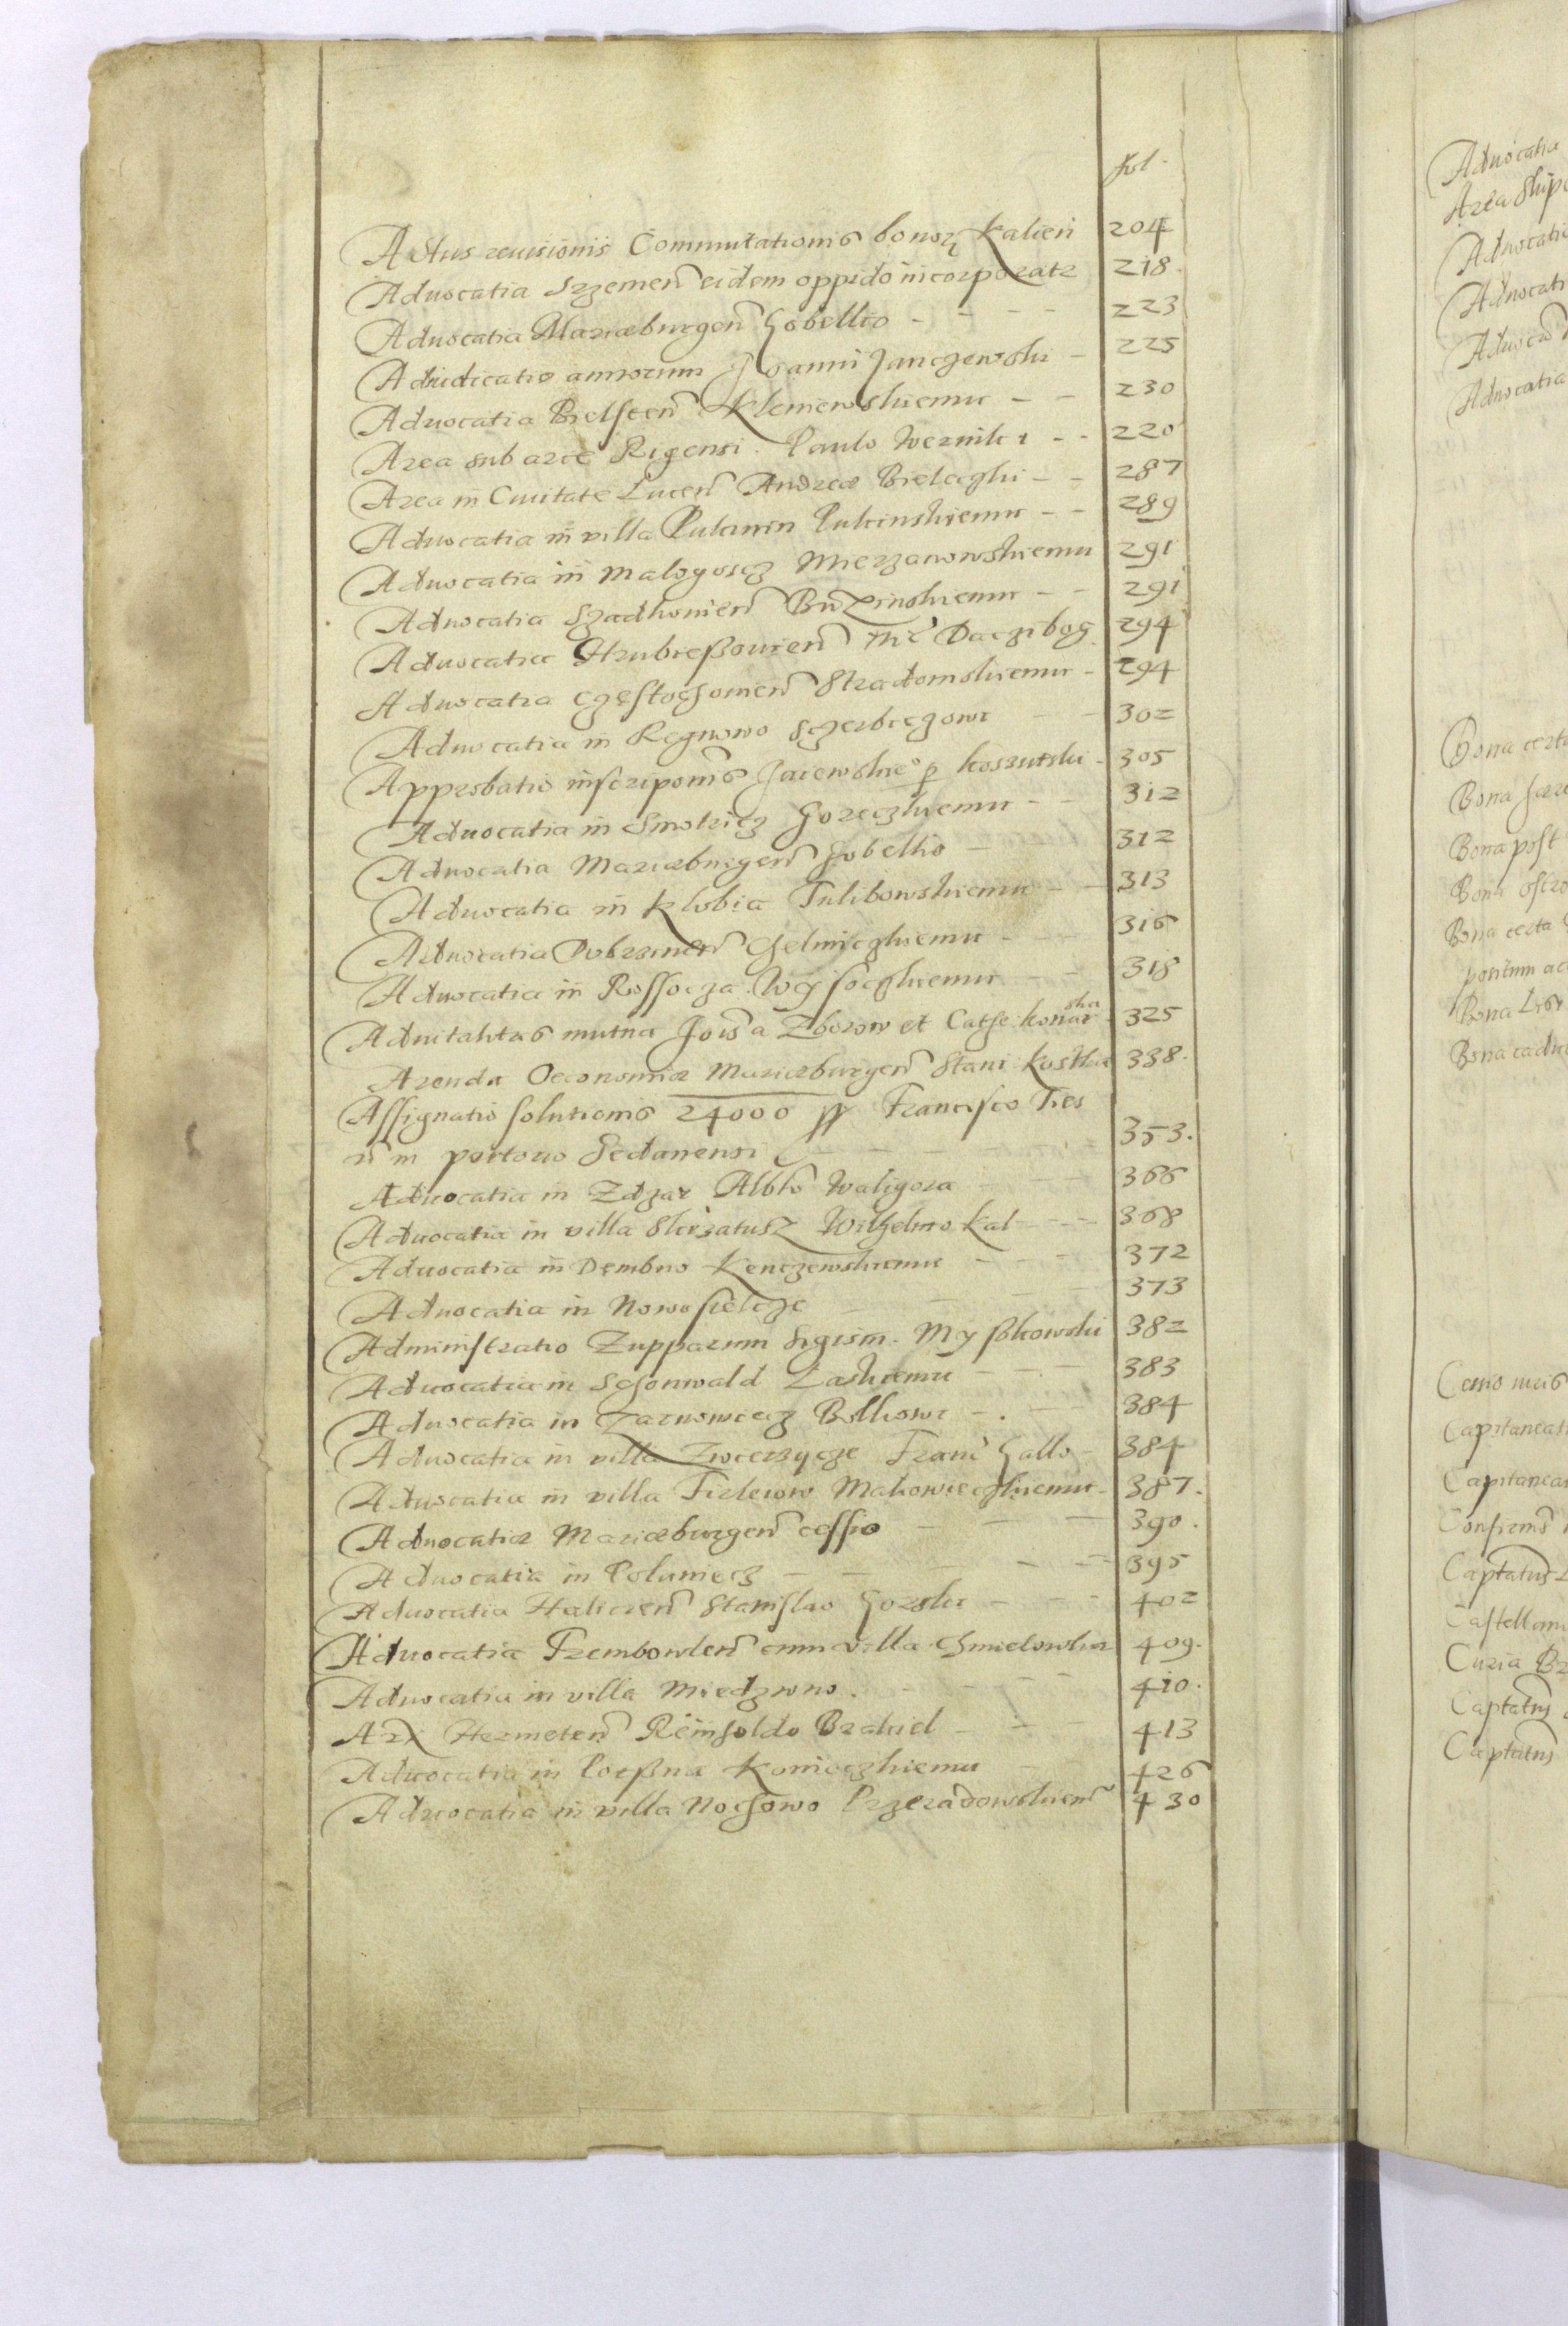 fol.
Actus reuisionis Commutationis bonorꝝ Kalien 204
Aduocatia Srzemen̄ eidem oppido incorporatr 218.
Aduocatia Mariæburgen̄ Gobellio - - - - 223
Adiudicatio annorum Joanni Janczewski - 225
Aduocatia Bielscen̄ Kleniewskiemu - - 230
Area sub arce Rigensi. Paulo Wernik - - 220
Area in Ciuitate Lucen̄ Andreæ Bieleczki - - 287
Aduocatia in villa Pulcinin Pulcinskiemu - - 289
Aduocatia in Malogoscz Mierzanowskiemu 291
Aduocatia Szadkouien̄ Buzenskiemu - - 291
Aduocatia Hrubießouien̄ Daczibog 294
Aduocatia Częstochouien̄ Stradomskiemu - 294
Aduocatia in Regnowo Sczerbiczowi - - 302
Approbatio inscriponis Jaiewskie p Koszutski - 305
Aduocatia in Smotricz Goreczkiemu - - 312
Aduocatia Mariæburgen̄ Gobellio - 312
Aduocatia in Klobia Tulibowskiemu - - 313
Aduocatia Dobrzinen̄ Chelmiczkiemu - - - 316
Aduocatia in Rossocza Wysoczkiemu - - 318
Aduitalitas mutua Jois a Zborow et Cathe: Konarska - 325
Arenda Oeconomiæ Mariæburgen̄ Stani Kostka 338.
Assignatio solutionis 24000 Francisco
in portorio Gedanensi - - - - - 353.
Aduocatia in Zdzar Albto Waligora - - - 366
Aduocatia in villa Skrzatusz Wilhelmo Kal - - - 368
Aduocatia in Dembno Kenczewskiemu - - - 372
Aduocatia in Nowosielcze - - - - 373
Administratio Zupparum Sigism. Myßkowski 382
Aduocatia in Schonwald Laskiemu - - - 383
Aduocatia in Zarnowiecz Bolkowi - . - - 384
Aduocatia in villa Zwierzycze Franc Gallo - 384
Aduocatia in villa Firleiow Makowieczkiemu - 387.
Aduocatiæ Mariæburgen̄ cessio - - - 390.
Aduocatia in Polumecz - - - - - 395
Aduocatia Halicien̄ Stanislao Gorski - - - 402
Aduocatia Trembowlen̄ cum villa Chmielowka 409.
Aduocatia in villa Miedzwno . - - - - 410.
Arx Hermeten̄ Reinholdo Brakiel - - - 413
Aduocatia in Poeßna Konieczkiemu - 426
Aduocatia in villa Nochowo Przeradowskiem̄ 430
Aduocatia
Area
Aduocati
Aduocati
Aduoca
Aduocatia
Bona certa
Bona
Bona post
Bona
Bona certa
Bona
Bona caduc
Capitaneat
Capitanea
Captatus
Castellan
Curia
Captatus
Captatus